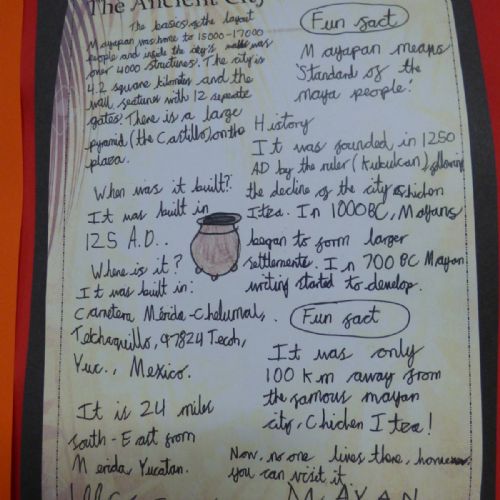 The Ancient City
The basics of the layout
Mayapan was home to 15000-17000
people and inside the city's walls was
over 4000 structures. The city is
4.2 square kilometres and the
wall features with 12 seperate
gates. There is a large
pyramid (the Castillo) on the
plaza.
When was it built?
It was built in
125 A.D..
Where is it?
It was built in:
Carretera Mérida-Chetumal,.
Telchaquillo, 97824 Tecoh,
Yuc., Mexico.
It is 24 miles
south-East from
Merida, Yucatan.
Fun fact
Mayapan means
'Standard of the
maya people!'
History
It was founded in 1250
AD by the ruler (Kukulcan) following
the decline of the city Chichen
Itea. In 1000BC, Mayans
began to form larger
settlements. In 700 BC Mayan
writing started to develop.
Fun fact
It was only
100 km away from
the famous mayan
city, Chichen Itea!
Now, no one lives there, however
you can visit it
MAYAN